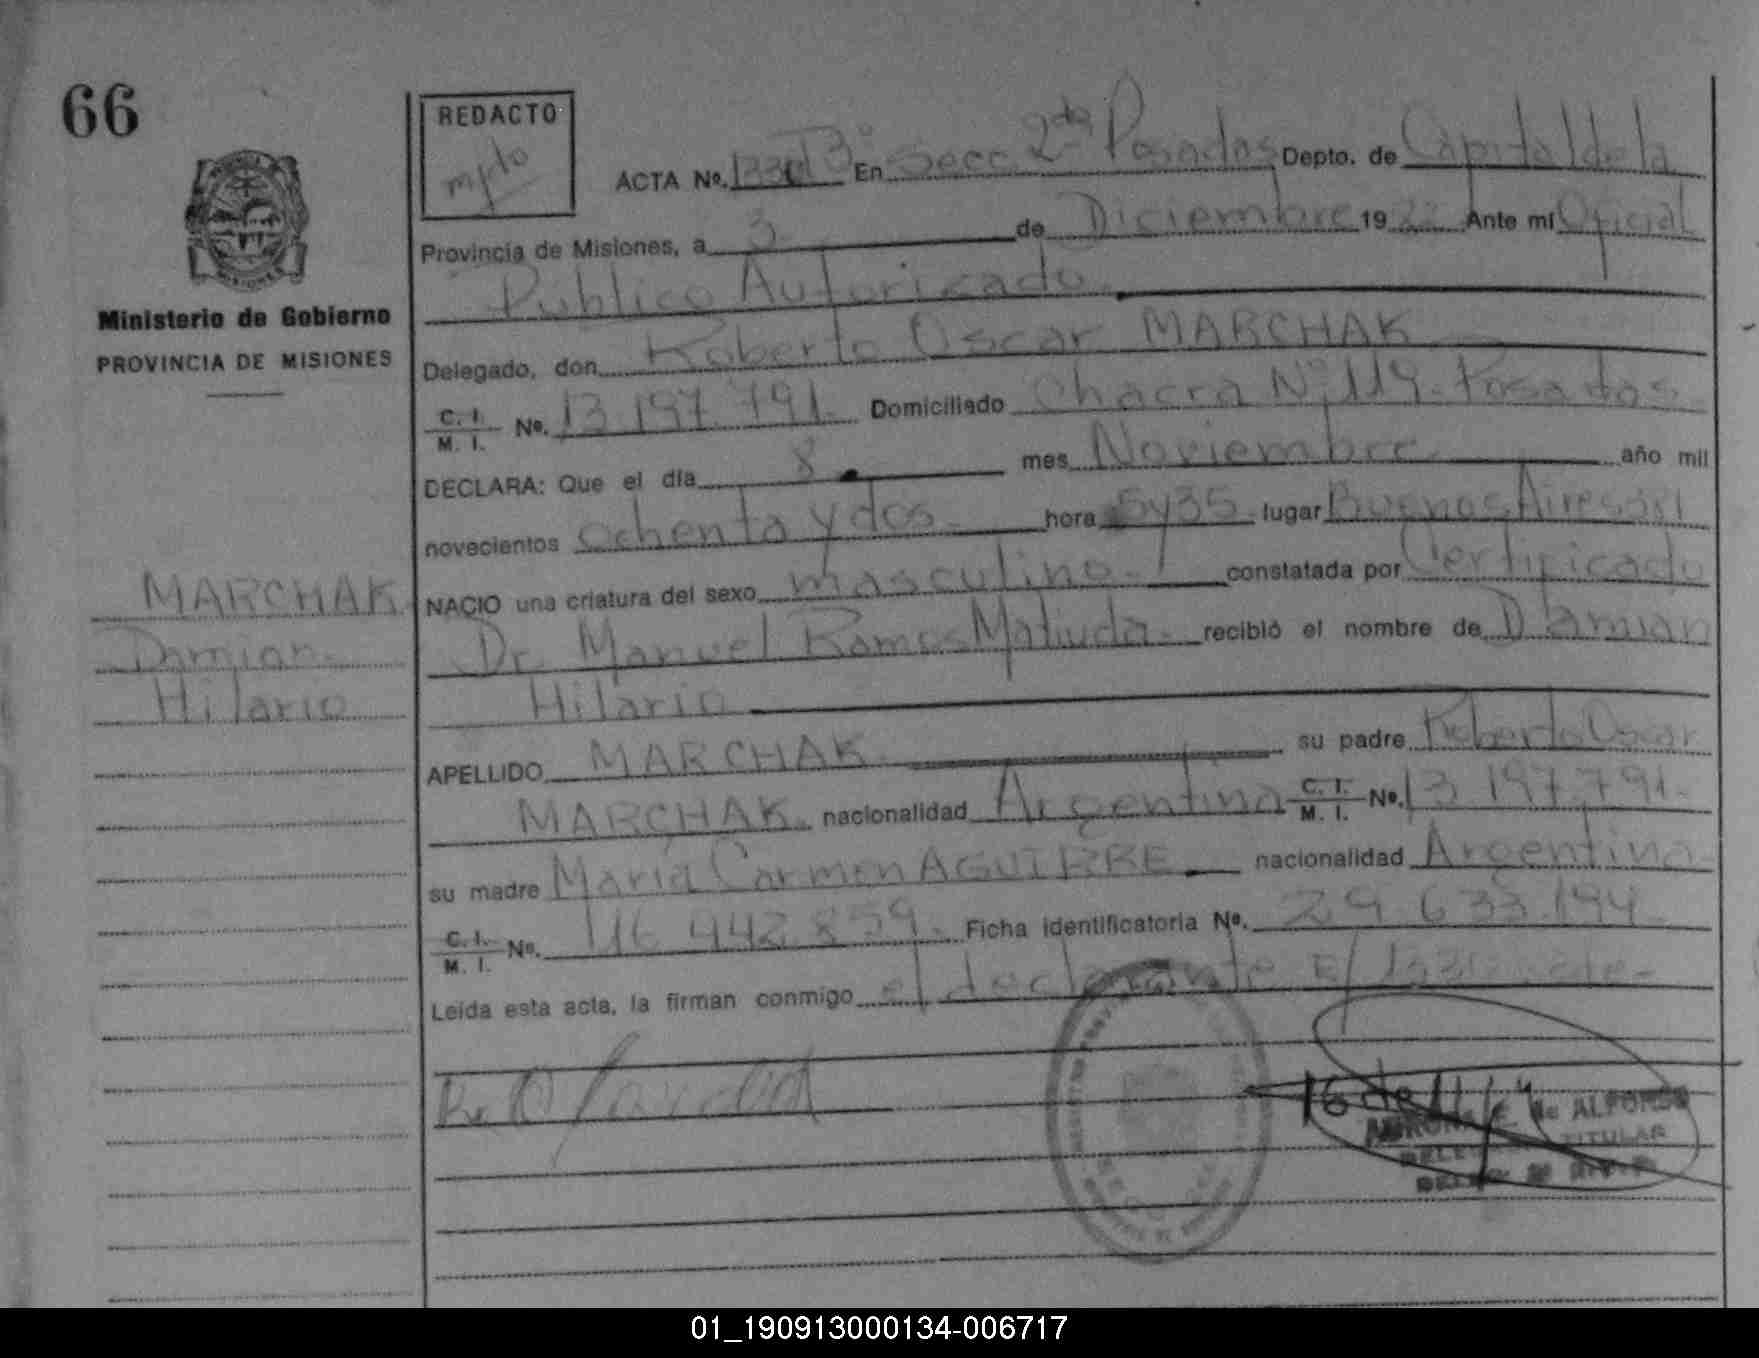 66
REDACTO
ACTA Nº. En Secc. 2da Posadas Depto. de Capital de la
Provincia de Misiones, a 3 de Diciembre 19 Ante mí Oficial
Público Autorizado
Ministerio de Gobierno
PROVINCIA DE MISIONES
Delegado, don Roberto Oscar MARCHAK
C. I. M. I. Nº. 13.197.791. Domiciliado Chacra Nº 119. Posadas.
DECLARA: Que el día 8 mes Noviembre año mil
novecientos ochenta y dos. hora 5y35. lugar Buenos Aires
MARCHAK
NACIO una criatura del sexo masculino. constatada por Certificado
Damian
Dr. Manuel Ramos recibió el nombre de Damian
Hilario
Hilario
APELLIDO MARCHAK su padre Roberto Oscar
MARCHAK. nacionalidad Argentina C. I. M. I. Nº. 13.197.791.
su madre María Carmen AGUIRRE nacionalidad Argentina.
C. I. M. I. Nº. 16.442.859. Ficha identificatoria Nº. 29.633.194
Leída esta acta, la firman conmigo el declarante
de ALFONSO
TITULAR
01_190913000134-006717